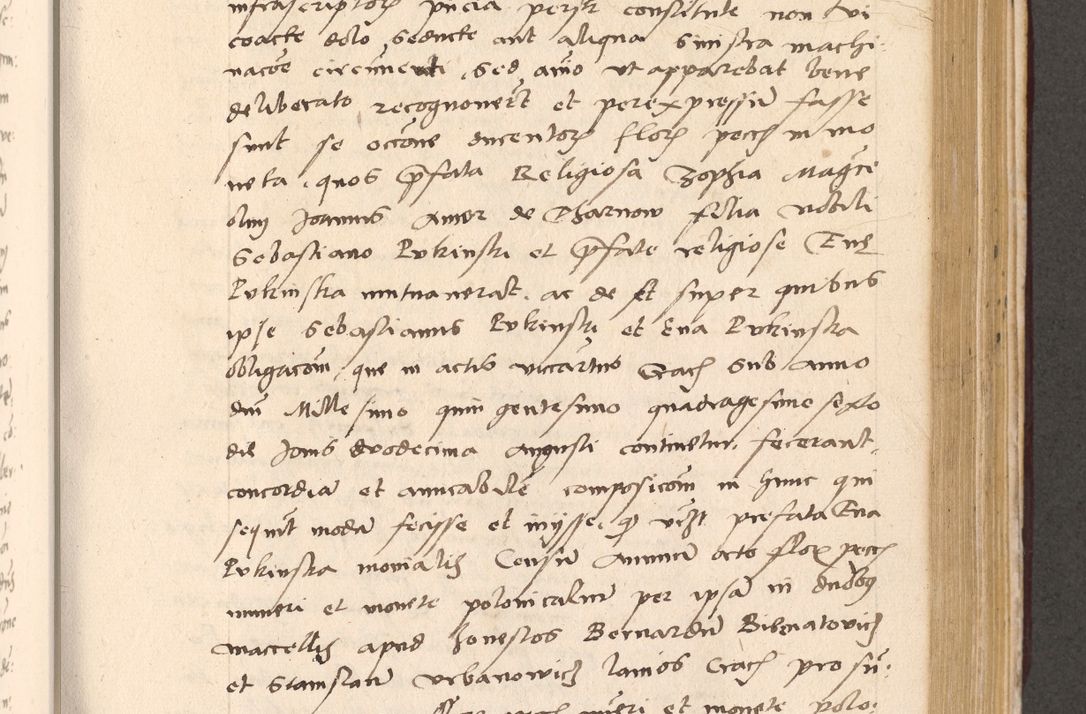 infrascriptorum pñcia persr constitute non vi
coacte dolo seducte aut aliqua sinistra machi:
nacõe circũnenti, sed aĩo ut apparebat bene
deliberato recognoverũt et per expressũ fasse
sunt se occõne ducentorũ florẽ pecch in mo
neta, quos p̃fata Religiosa Zophia Magcẽ
olim Joannis Amor de Tharnow filia nobili
Sebastiano Lukinski et p̃fate religiose Eue
Lukinska mutuauerat, ac de et super quibus
ipse Sebastianus Lukinski et Eua Lukinska
obligacõm, que in actis vicariatus Crach sub anno
dñi Millesimo quingentesimo quadragesimo sexto
die Jovis duodecima Augusti continetur, fecerant,
concordiã et amicabilẽ composicõm in hunc qui
sequit modũ fecisse et inijsse, q videlt prefata Eua
Lukinska monialis Censũ annuũ octo flor pecch
numeri et monete polonicaliũ per ipsã in duobus
maccellis apud honestos Bernardũ Bibenatovicz
et Stanislaũ Urbanowicz lanios Crach pro sũ:
numeri et monete polo: